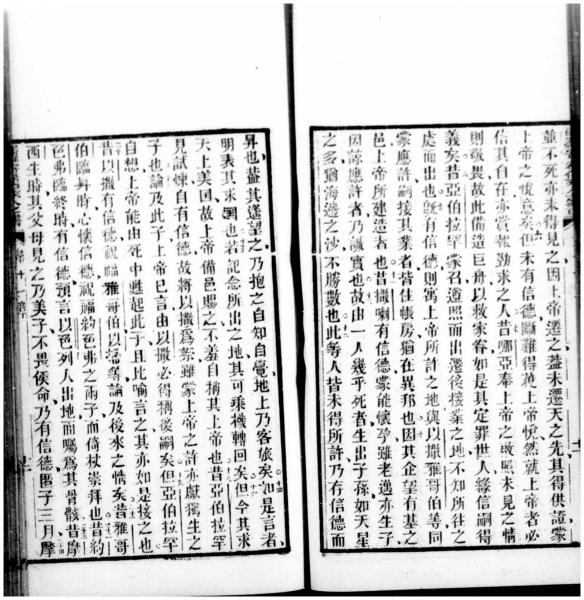 並不死亦未得見之因上帝遷之蓋未遷天之先其得供證蒙
上帝之悅意矣但未有信德斷難得英上帝悅然就上帝者必
信其自在亦賞報勤求之人昔哪亞奉上帝之啟照未見之情
則敬畏故此備造巨舟以救家眷如是其定罪世人緣信嗣得
義矣昔亞伯拉罕蒙召遵照而出遷後接業之地不知所往之
處而出也既有信德則寓上帝所許之地與以撒雅哥伯等同
蒙應許嗣接其業者皆住帳房猶在異邦也因其企望有基之
邑上帝所建造者也昔撒喇有信德蒙能懷孕雖老邁亦生子
因諒應許者乃誠實也故由一人幾乎死者生出子孫如天星
之多猶海邊之沙不勝數也此等人皆未得所許乃存信德而
昇也蓋其遙望之乃抱之自知自覺地上乃客旅矣如是言者
明表其求國也若記念所出之地其可乘機轉回矣但今其求
天上美国故上帝備邑賜之不羞自稱其上帝也昔亞伯拉罕
見試煉自有信德故將以撒為祭雖蒙上帝之許亦獻獨生之
子也論及此子上帝已言由以撒必得稱後嗣矣但亞伯拉罕
自想上帝能由死中甦起此子且比喻言之其亦如是接之也
昔以撒有信德祝福雅哥伯以掃等論及後來之情矣昔雅哥
伯臨昇時心懷信德祝福約色弗之兩子而倚杖崇拜也昔約
色弗臨終時有信德預言以色列人出地而囑為其骨骸昔摩
西生時其父母見之乃美子不畏侯命乃有信德匿子三月摩